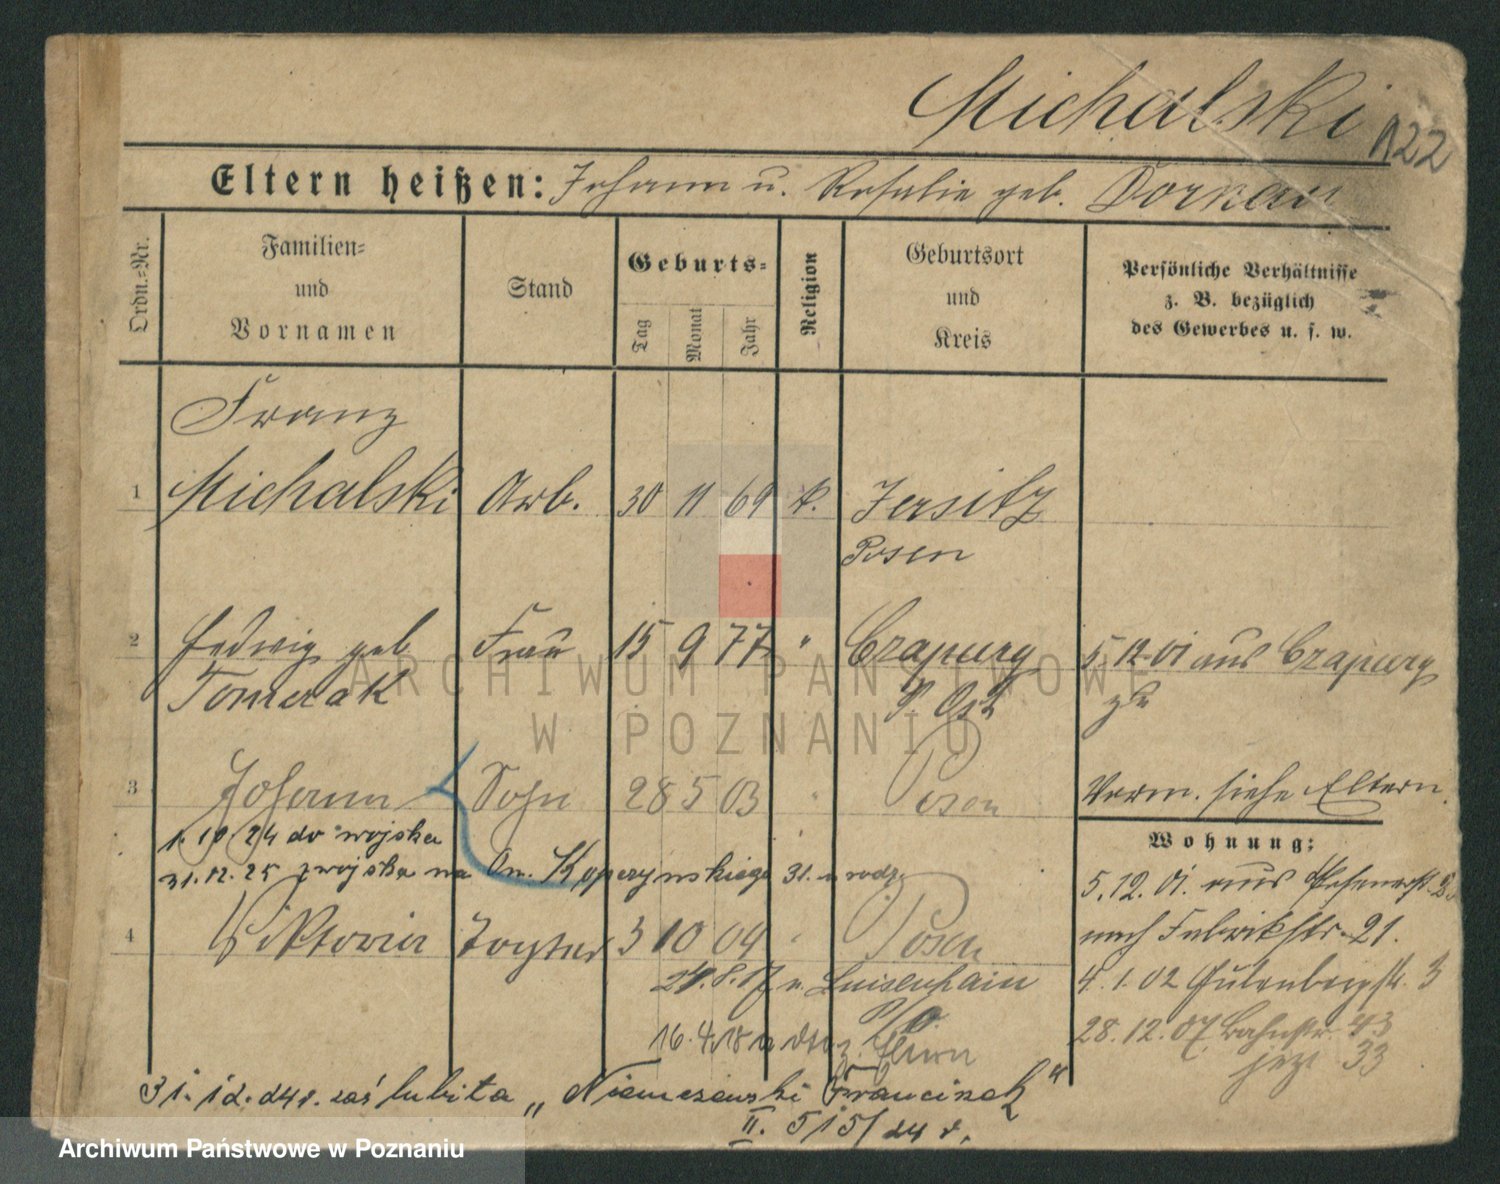 Michalski
122
Eltern heißen: Johann u. Rosalie geb.
Ordn.-Nr.
Familien-
und
Vornamen
Stand
Geburts-
Tag
Monat
Jahr
Religion
Geburtsort
und
Kreis
Persönliche Verhältnisse
z. B. bezüglich
des Gewerbes u. s. w.
Franz
1 Michalski Arb. 30 11 69 k. Jersitz
Posen
2 Hedwig geb Frau 15 9 77 " Czapury 5.12.01 aus Czapury
Tomczak P. Ost zu
3 Johann Sohn 28 5 03 " Posen Verm. siehe Eltern.
1.10.24 do wojska
31.12.25 z wojska na Am. Koperzynskiego 31. u rodz.
Wohnung:
5.12.01. aus
4 Viktoria Tochter 3 10 04 " Posen
nach Fabrikstr. 21.
24.8.17 n. Luisenhain
4.1.02 Gutenbergstr. 3
16.4.18 Eltern
28.12.07 Bahnstr. 43
jezt 33
31.12.24 r. zaślubiła „Niemczewski Franciszek"
II. 515/24 r.
ARCHIWUM PAŃSTWOWE
W POZNANIU
Archiwum Państwowe w Poznaniu